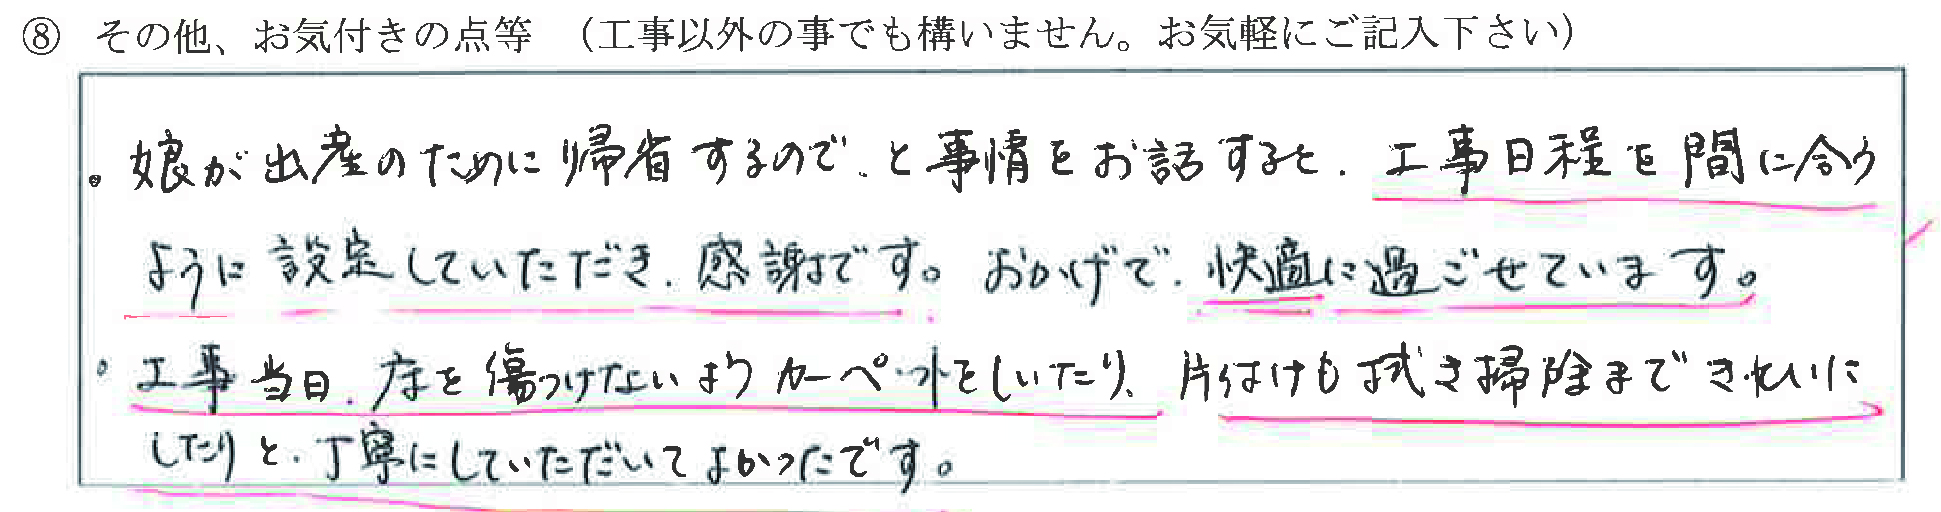 ⑧ その他、お気付きの点等 （工事以外の事でも構いません。お気軽にご記入下さい）
・娘が出産のために帰省するので、と事情をお話すると、工事日程を間に合う
ように設定していただき、感謝です。おかげで、快適に過ごせています。
・工事当日、床を傷つけないようカーペットをしいたり、片付けも拭き掃除まできれいに
したりと、丁寧にしていただいてよかったです。